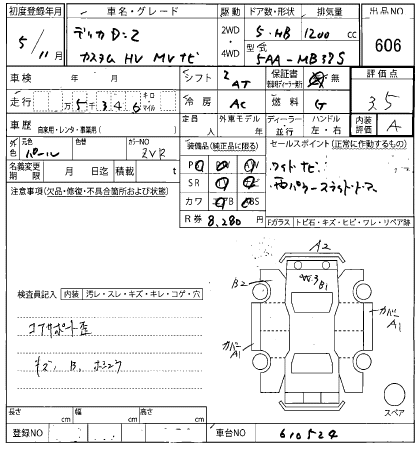 初度登録年月 車名・グレード 駆動 ドア数・形状 排気量 出品NO
5/11月 デリカD:2 2WD 5・HB 1200 CC 606
カスタム HV MV ナビ 4WD 型式 5AA-MB37S
車検 年 月 シフト AT 保証書 新車時ディーラー発行 有 無 評価点
走行 万 5千 3 4 6 キロ マイル 冷房 AC 燃料 G 3.5
車歴 自家用・レンタ・事業用( ) 定員 人 外車モデル 年 ディーラー 並行 ハンドル 左・右 内装評価 A
外色 元色 パール 色替 カラーNO ZVR 装備品(純正品に限る) セールスポイント(正常に作動するもの)
名義変更期限 月 日迄 積載 t ・ワイド ナビ
注意事項(欠品・修復・不具合箇所および状態) SR ・両パワースライドドア
カワ
R券 8,280円 Fガラス トビ石・キズ・ヒビ・ワレ・リペア跡
A2
B2 W3 B1
検査員記入 内装 汚レ・スレ・キズ・キレ・コゲ・穴
カバーA1
コアサポート歪
カバーA1
キズ、B、ホシュウ
スペア
長さ cm 幅 cm 高さ cm
登録NO 車台NO 610524